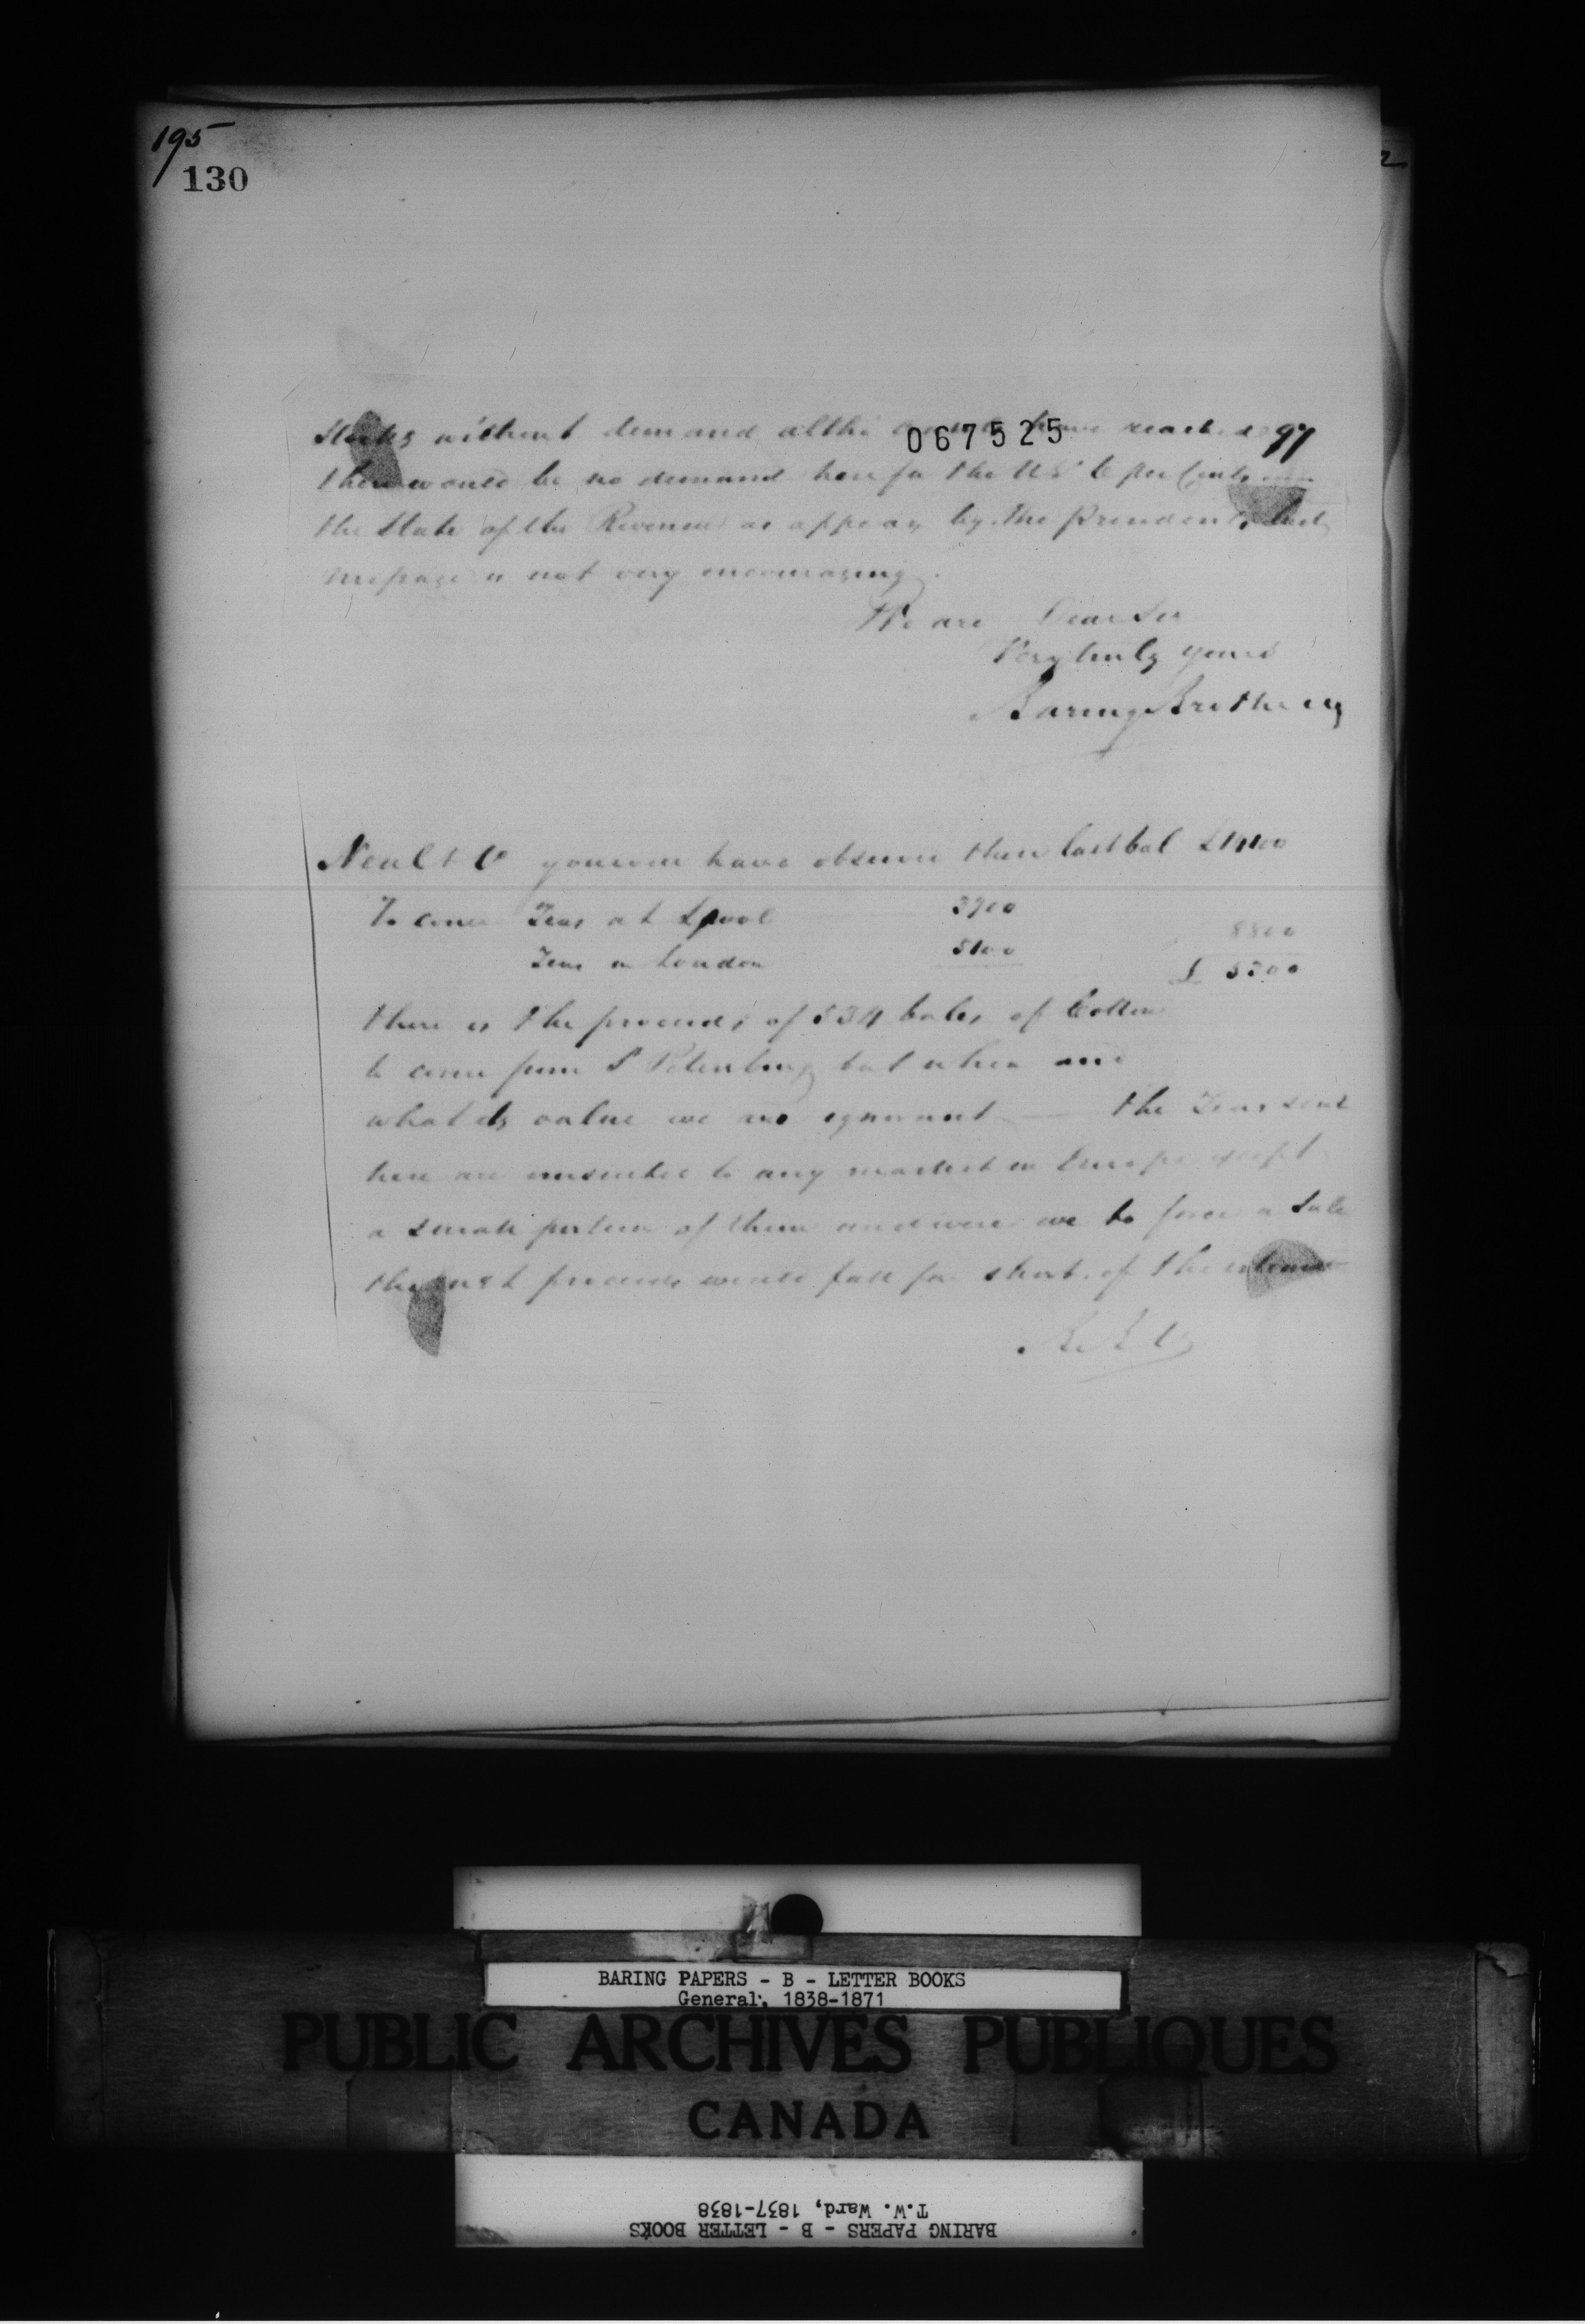 195
130
2
067525
Stocks without demand altho have reached 97
there would be no demand here for the US 6 per Cents
the State of the Revenue as appears by the Presidents last
message is not very encouraging.
We are Dear Sir
Very truly yours
Baring Brothers
Neal & Co you will have observed their last bal £
To come Teas at Lpool 3700
Teas in London 5100 8800
£ 5300
there is the proceeds of 534 bales of Cotton
to come from St Petersburg but when and
what its value we are ignorant — the Teas sent
here are unsuited to any market in Europe except
a small portion of them and were we to force a Sale
the nett proceeds would fall far short of the
BARING PAPERS - B - LETTER BOOKS
General, 1838-1871
PUBLIC ARCHIVES PUBLIQUES
CANADA
BARING PAPERS - B - LETTER BOOKS
T.W. Ward, 1837-1838